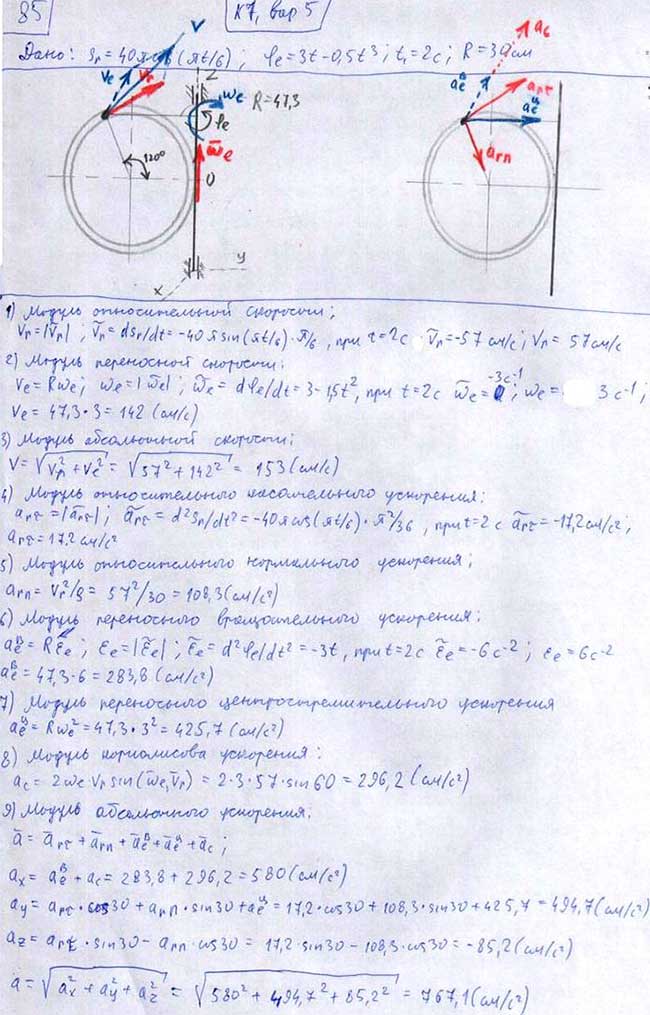 85 К7, вар 5
Дано: Sr = 40π cos(πt/6); φe = 3t - 0,5t³; t₁ = 2c; R = 30 см
V
Ve Vr Z ωe R = 47,3
φe
120° ω̄e
O
y
x
ac
aeᴮ arτ
aeц
arn
1) Модуль относительной скорости;
Vr = |Ṽr|; Ṽr = dSr/dt = -40π sin(πt/6)·π/6, при t = 2c Ṽr = -57 см/с; Vr = 57 см/с
2) Модуль переносной скорости:
Ve = Rωe; ωe = |ω̃e|; ω̃e = dφe/dt = 3 - 1,5t², при t = 2c ω̃e = -3c⁻¹; ωe = 3 c⁻¹;
Ve = 47,3·3 = 142 (см/с)
3) Модуль абсолютной скорости;
V = √(Vr² + Ve²) = √(57² + 142²) = 153 (см/с)
4) Модуль относительного касательного ускорения:
arτ = |ãrτ|; ãrτ = d²Sr/dt² = -40π cos(πt/6)·π²/36, при t = 2c ãrτ = -17,2 см/с²;
arτ = 17,2 см/с²
5) Модуль относительного нормального ускорения;
arn = Vr²/ρ = 57²/30 = 108,3 (см/с²)
6) Модуль переносного вращательного ускорения:
aeᴮ = Rεe; εe = |ε̃e|; ε̃e = d²φe/dt² = -3t, при t = 2c ε̃e = -6c⁻²; εe = 6c⁻²
aeᴮ = 47,3·6 = 283,8 (см/с²)
7) Модуль переносного центростремительного ускорения
aeц = Rωe² = 47,3·3² = 425,7 (см/с²)
8) Модуль кориолисова ускорения:
ac = 2ωe Vr sin(ω̄e, V̄r) = 2·3·57·sin60 = 296,2 (см/с²)
9) Модуль абсолютного ускорения;
ā = ārτ + ārn + āeᴮ + āeц + āc;
ax = aeᴮ + ac = 283,8 + 296,2 = 580 (см/с²)
ay = arτ·cos30 + arn·sin30 + aeц = 17,2·cos30 + 108,3·sin30 + 425,7 = 494,7 (см/с²)
az = arτ·sin30 - arn·cos30 = 17,2·sin30 - 108,3·cos30 = -85,2 (см/с²)
a = √(ax² + ay² + az²) = √(580² + 494,7² + 85,2²) = 767,1 (см/с²)